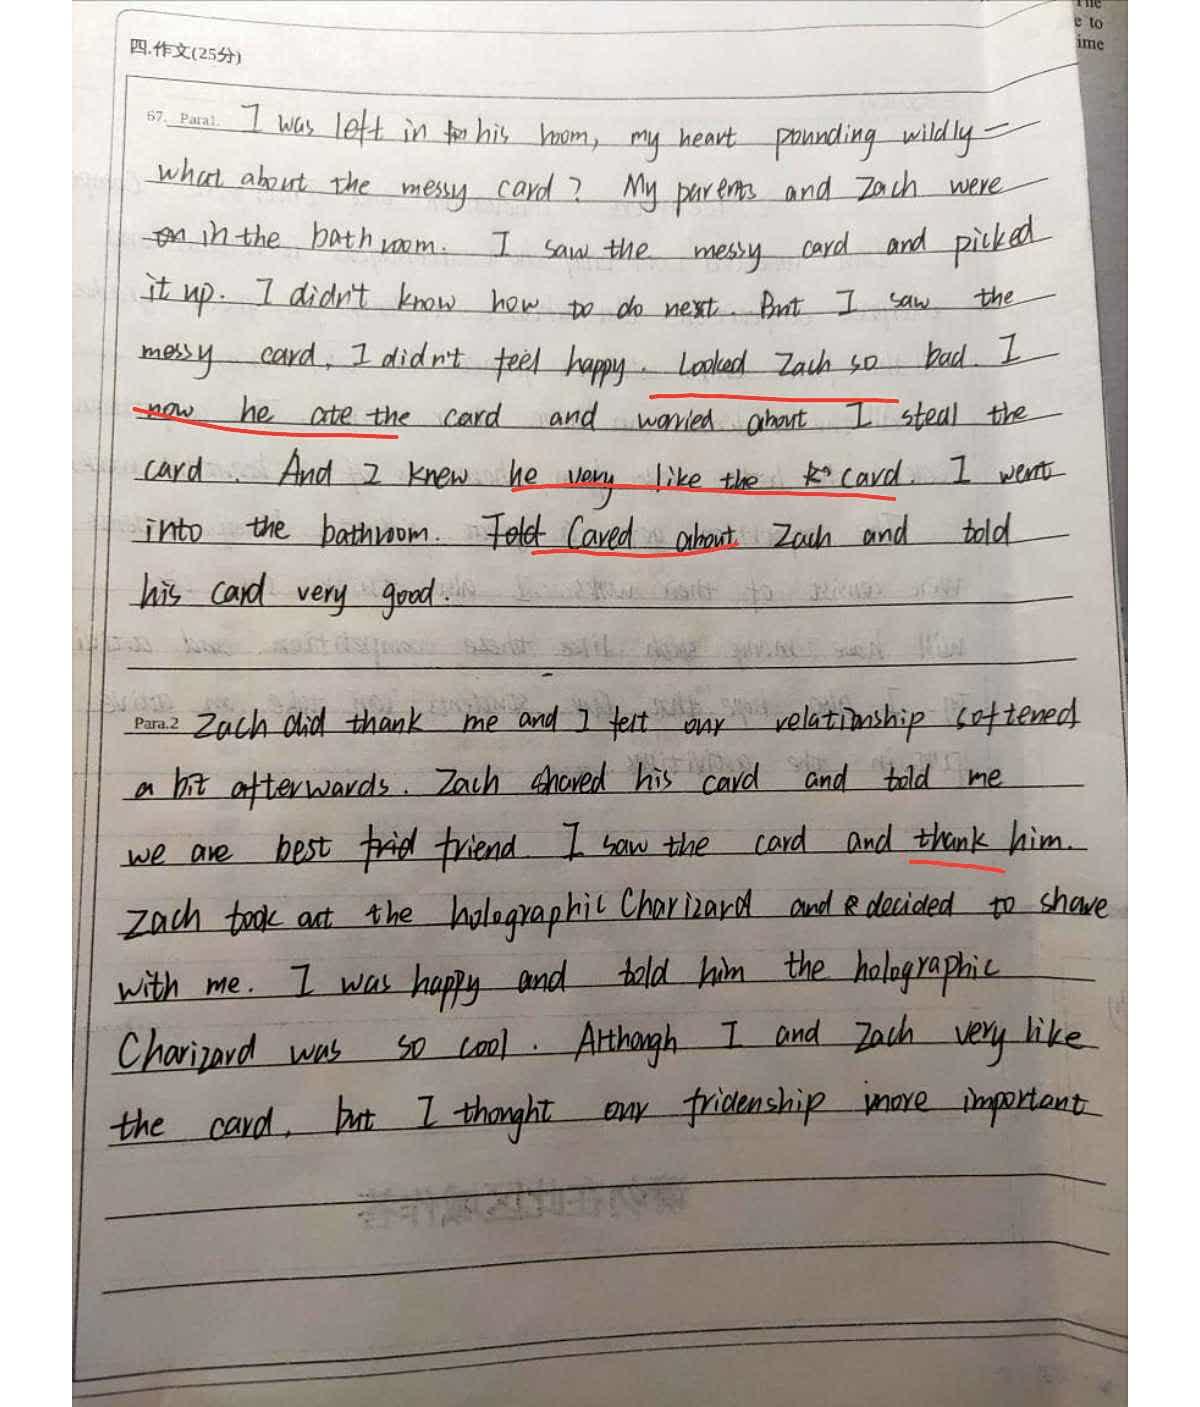 The
e to
ime
四.作文(25分)
67. Para1. I was left in for his room, my heart pounding wildly —
what about the messy card? My parents and Zach were
on in the bathroom. I saw the messy card and picked
it up. I didn't know how to do next. But I saw the
messy card, I didn't feel happy. Looked Zach so bad. I
now he ate the card and worried about I steal the
card. And I knew he very like the card. I went
into the bathroom. Told Cared about Zach and told
his card very good.
Para.2 Zach did thank me and I felt our relationship softened
a bit afterwards. Zach shared his card and told me
we are best frid friend. I saw the card and thank him.
Zach took out the holographic Charizard and decided to share
with me. I was happy and told him the holographic
Charizard was so cool. Although I and Zach very like
the card, but I thought our fridenship more important
请勿在此区域作答